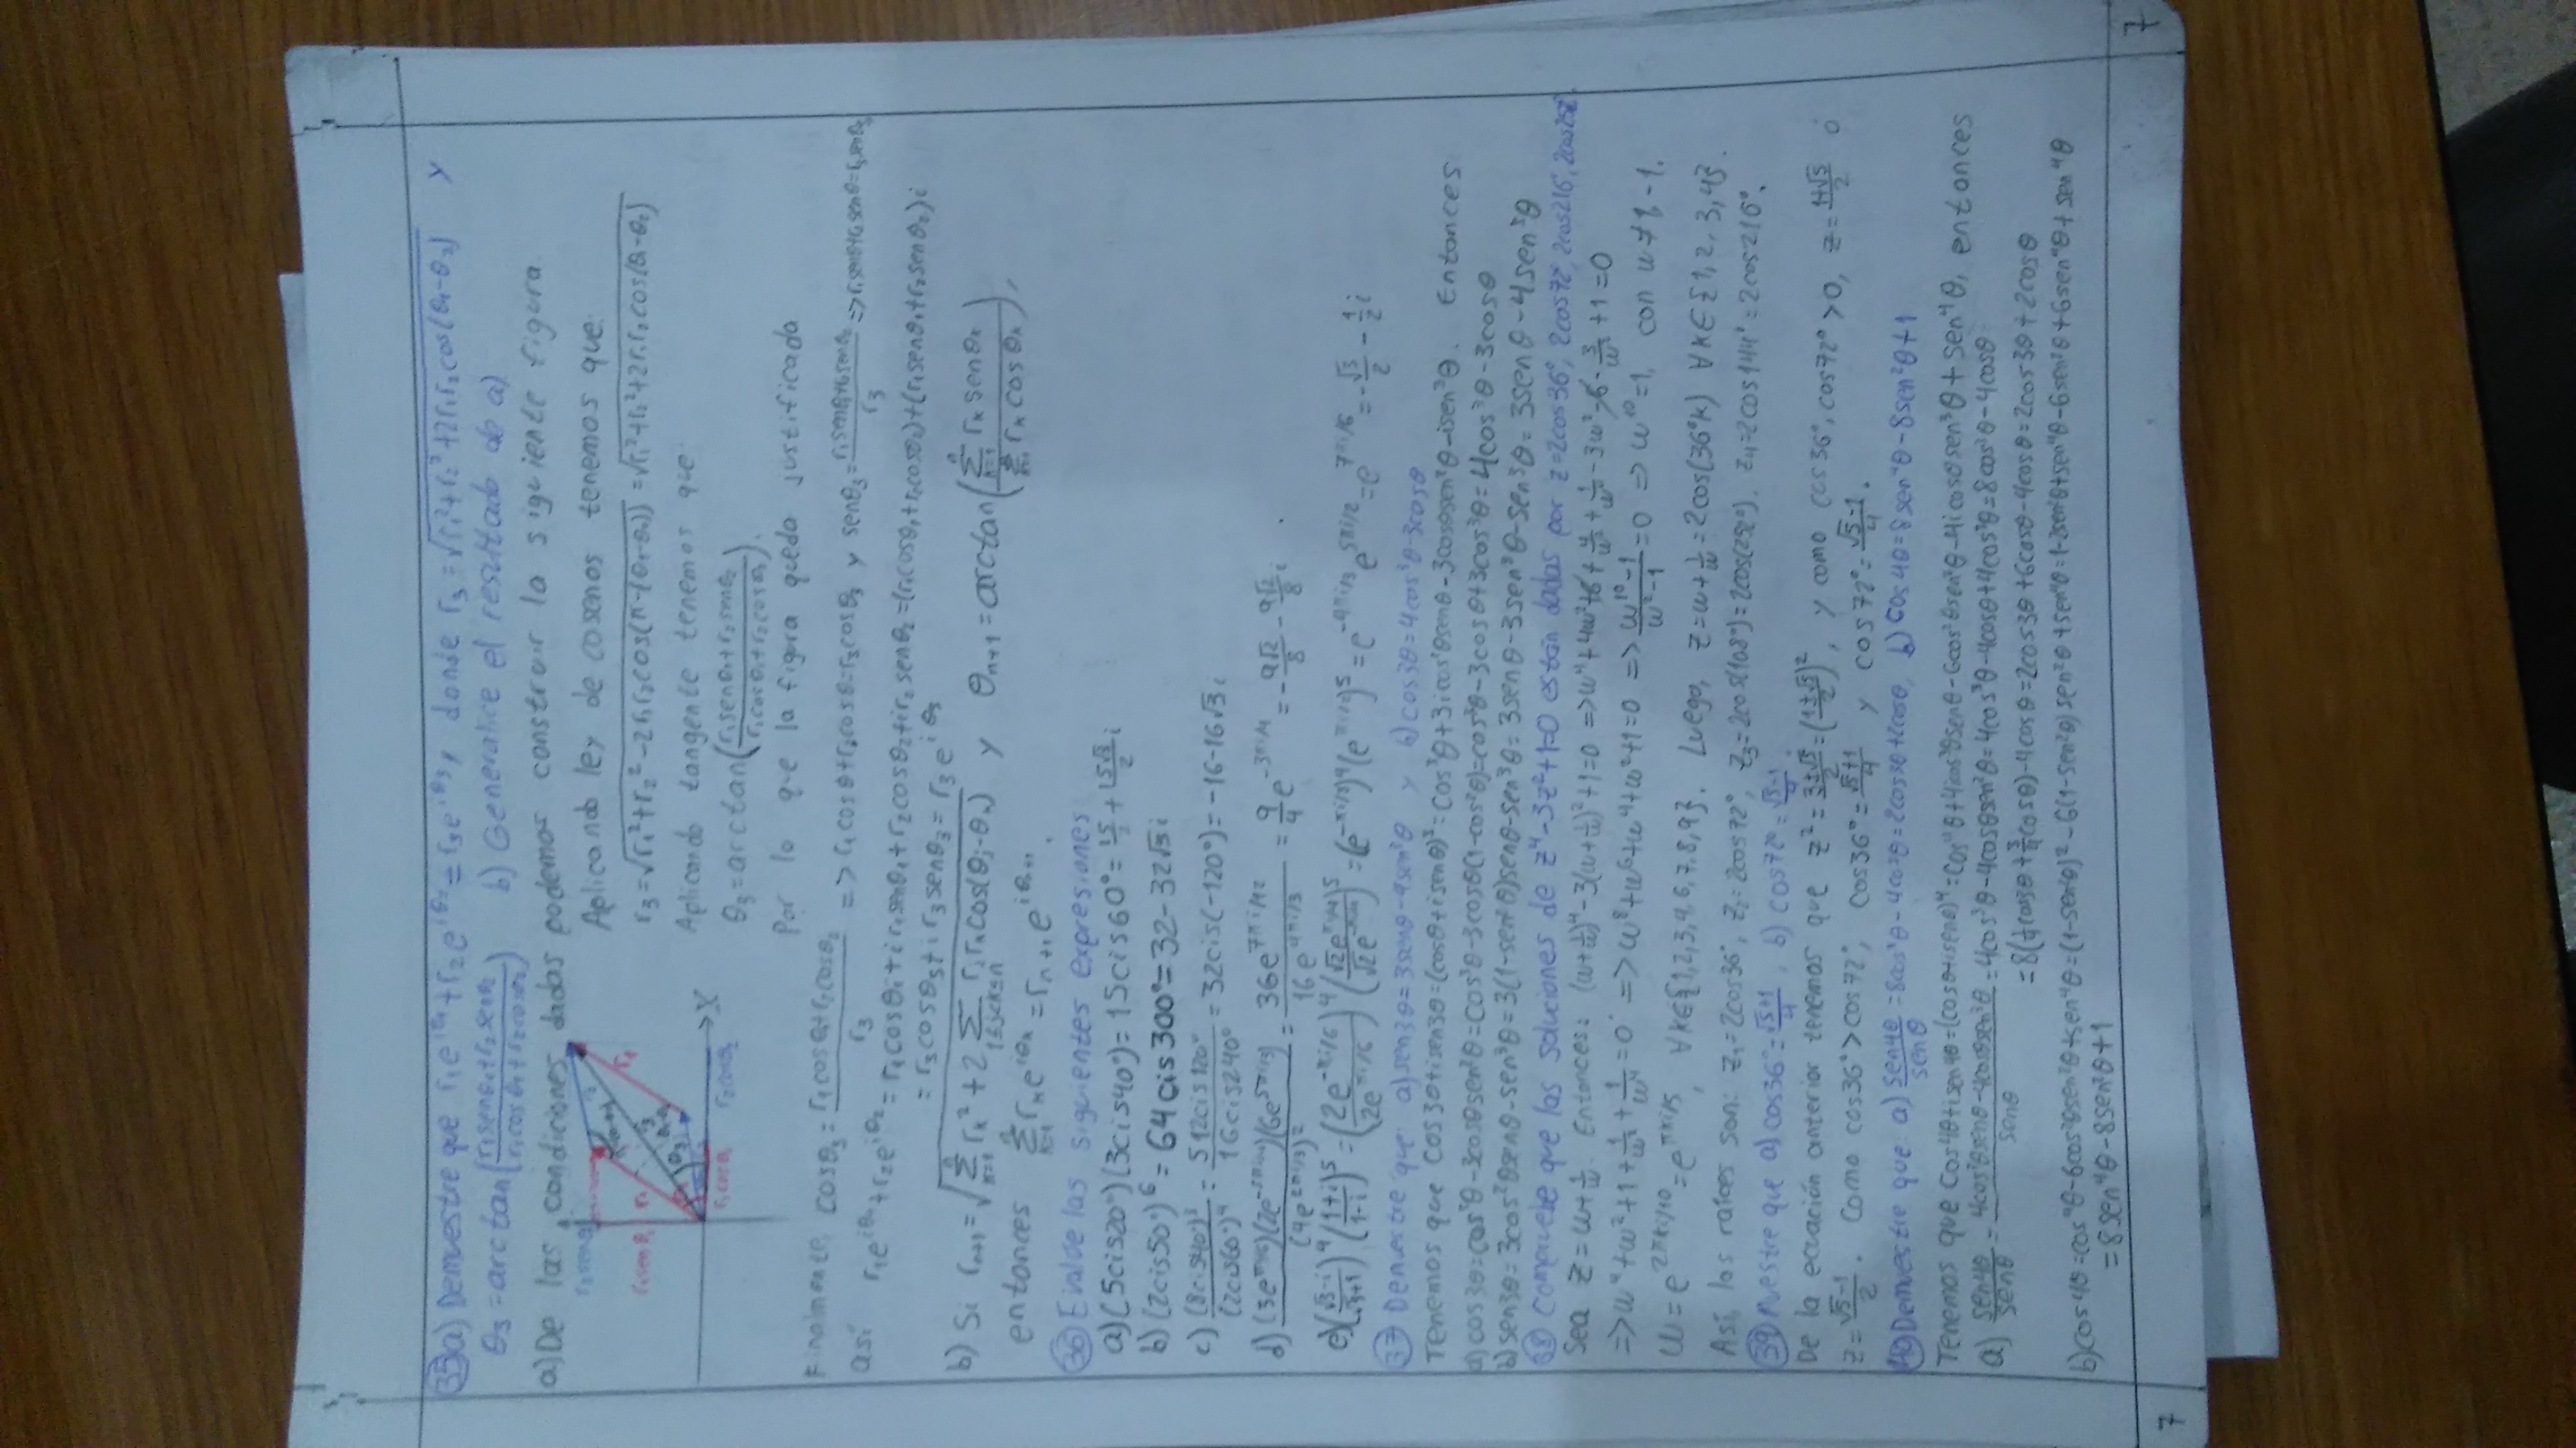 35 a) Demuestre que r₁e^{iθ₁}+r₂e^{iθ₂}=r₃e^{iθ₃}, donde r₃=√(r₁²+r₂²+2r₁r₂cos(θ₁-θ₂)) y
θ₃=arctan((r₁senθ₁+r₂senθ₂)/(r₁cosθ₁+r₂cosθ₂)) b) Generalice el resultado de a)
a) De las condiciones dadas podemos construir la siguiente figura.
r₁senθ₁
r₁cosθ₁ r₂cosθ₂
X
Aplicando ley de cosenos tenemos que:
r₃=√(r₁²+r₂²-2r₁r₂cos(π-(θ₁-θ₂)))=√(r₁²+r₂²+2r₁r₂cos(θ₁-θ₂))
Aplicando tangente tenemos que:
θ₃=arctan((r₁senθ₁+r₂senθ₂)/(r₁cosθ₁+r₂cosθ₂)).
Por lo que la figura queda justificada
Finalmente, cosθ₃=(r₁cosθ₁+r₂cosθ₂)/r₃ => r₁cosθ+r₂cosθ=r₃cosθ₃ y senθ₃=(r₁senθ₁+r₂senθ₂)/r₃ => r₁senθ+r₂senθ=r₃senθ₃
así r₁e^{iθ₁}+r₂e^{iθ₂}=r₁cosθ₁+ir₁senθ₁+r₂cosθ₂+ir₂senθ₂=(r₁cosθ₁+r₂cosθ₂)+(r₁senθ₁+r₂senθ₂)i
=r₃cosθ₃+ir₃senθ₃=r₃e^{iθ₃}
b) Si r_{n+1}=√(∑_{k=1}^{n} r_k²+2∑_{1≤j<k≤n} r_j r_k cos(θ_j-θ_k)) y θ_{n+1}=arctan((∑_{k=1}^{n} r_k senθ_k)/(∑_{k=1}^{n} r_k cosθ_k)),
entonces ∑_{k=1}^{n} r_k e^{iθ_k}=r_{n+1}e^{iθ_{n+1}}.
36 Evalúe las siguientes expresiones:
a) (5cis20°)(3cis40°)=15cis60°=15/2+(15√3/2)i
b) (2cis50°)⁶=64cis300°=32-32√3i
c) (8cis40°)³/(2cis60°)⁴=512cis120°/16cis240°=32cis(-120°)=-16-16√3i
d) (3e^{πi/6})(2e^{-5πi/4})(6e^{5πi/3})/(4e^{2πi/3})²=36e^{7πi/12}/16e^{4πi/3}=(9/4)e^{-3πi/4}=-9√2/8-(9√2/8)i
e) ((√3-i)/(√3+i))⁴((1+i)/(1-i))⁵=(2e^{-πi/6}/2e^{πi/6})⁴(√2e^{πi/4}/√2e^{-πi/4})⁵=(e^{-πi/3})⁴(e^{πi/2})⁵=e^{-4πi/3}e^{5πi/2}=e^{7πi/6}=-√3/2-(1/2)i
37 Demuestre que: a) sen3θ=3senθ-4sen³θ y b) cos3θ=4cos³θ-3cosθ
Tenemos que cos3θ+isen3θ=(cosθ+isenθ)³=cos³θ+3icos²θsenθ-3cosθsen²θ-isen³θ. Entonces
a) cos3θ=cos³θ-3cosθsen²θ=cos³θ-3cosθ(1-cos²θ)=cos³θ-3cosθ+3cos³θ=4cos³θ-3cosθ
b) sen3θ=3cos²θsenθ-sen³θ=3(1-sen²θ)senθ-sen³θ=3senθ-3sen³θ-sen³θ=3senθ-4sen³θ
38 Compruebe que las soluciones de z⁴-3z²+1=0 están dadas por z=2cos36°, 2cos72°, 2cos216°, 2cos252°.
Sea z=w+1/w. Entonces: (w+1/w)⁴-3(w+1/w)²+1=0 => w⁴+4w²+6+4/w²+1/w⁴-3w²-6-3/w²+1=0
=> w⁴+w²+1+1/w²+1/w⁴=0 => w⁸+w⁶+w⁴+w²+1=0 => (w¹⁰-1)/(w²-1)=0 => w¹⁰=1, con w≠1,-1.
w=e^{2πki/10}=e^{πki/5}, ∀k∈{1,2,3,4,6,7,8,9}. Luego, z=w+1/w=2cos(36°k) ∀k∈{1,2,3,4}.
Así, las raíces son: z₁=2cos36°, z₂=2cos72°, z₃=2cos(108°)=2cos(252°), z₄=2cos144°=2cos216°.
39 Muestre que a) cos36°=(√5+1)/4, b) cos72°=(√5-1)/4.
De la ecuación anterior tenemos que z²=(3±√5)/2=((1±√5)/2)², y como cos36°, cos72°>0, z=(1+√5)/2 ó
z=(√5-1)/2. Como cos36°>cos72°, cos36°=(√5+1)/4 y cos72°=(√5-1)/4.
40 Demuestre que a) sen4θ/senθ=8cos³θ-4cosθ=2cos3θ+2cosθ, b) cos4θ=8sen⁴θ-8sen²θ+1
Tenemos que cos4θ+isen4θ=(cosθ+isenθ)⁴=cos⁴θ+4icos³θsenθ-6cos²θsen²θ-4icosθsen³θ+sen⁴θ, entonces
a) sen4θ/senθ=(4cos³θsenθ-4cosθsen³θ)/senθ=4cos³θ-4cosθsen²θ=4cos³θ-4cosθ+4cos³θ=8cos³θ-4cosθ
=8(¼cos3θ+¾cosθ)-4cosθ=2cos3θ+6cosθ-4cosθ=2cos3θ+2cosθ
b) cos4θ=cos⁴θ-6cos²θsen²θ+sen⁴θ=(1-sen²θ)²-6(1-sen²θ)sen²θ+sen⁴θ=1-2sen²θ+sen⁴θ-6sen²θ+6sen⁴θ+sen⁴θ
=8sen⁴θ-8sen²θ+1
7
7